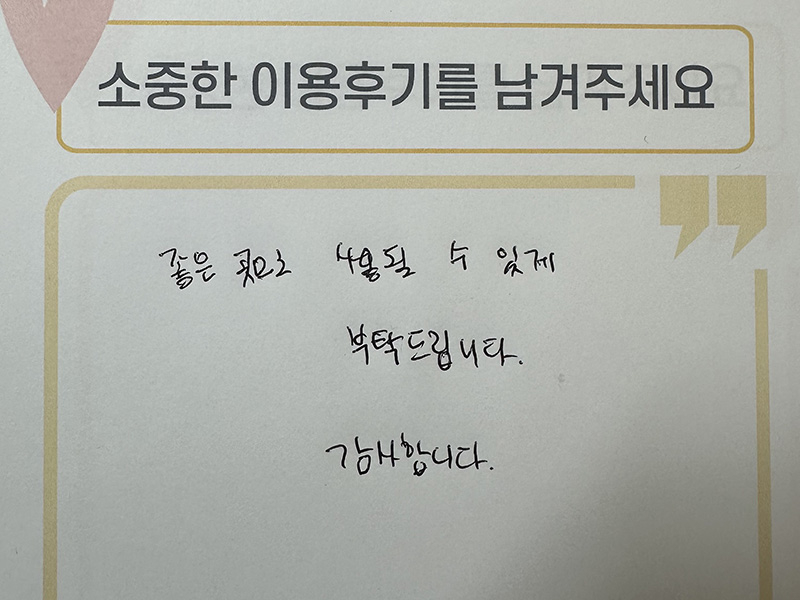 소중한 이용후기를 남겨주세요
좋은 곳으로 사용될 수 있게
부탁드립니다.
감사합니다.